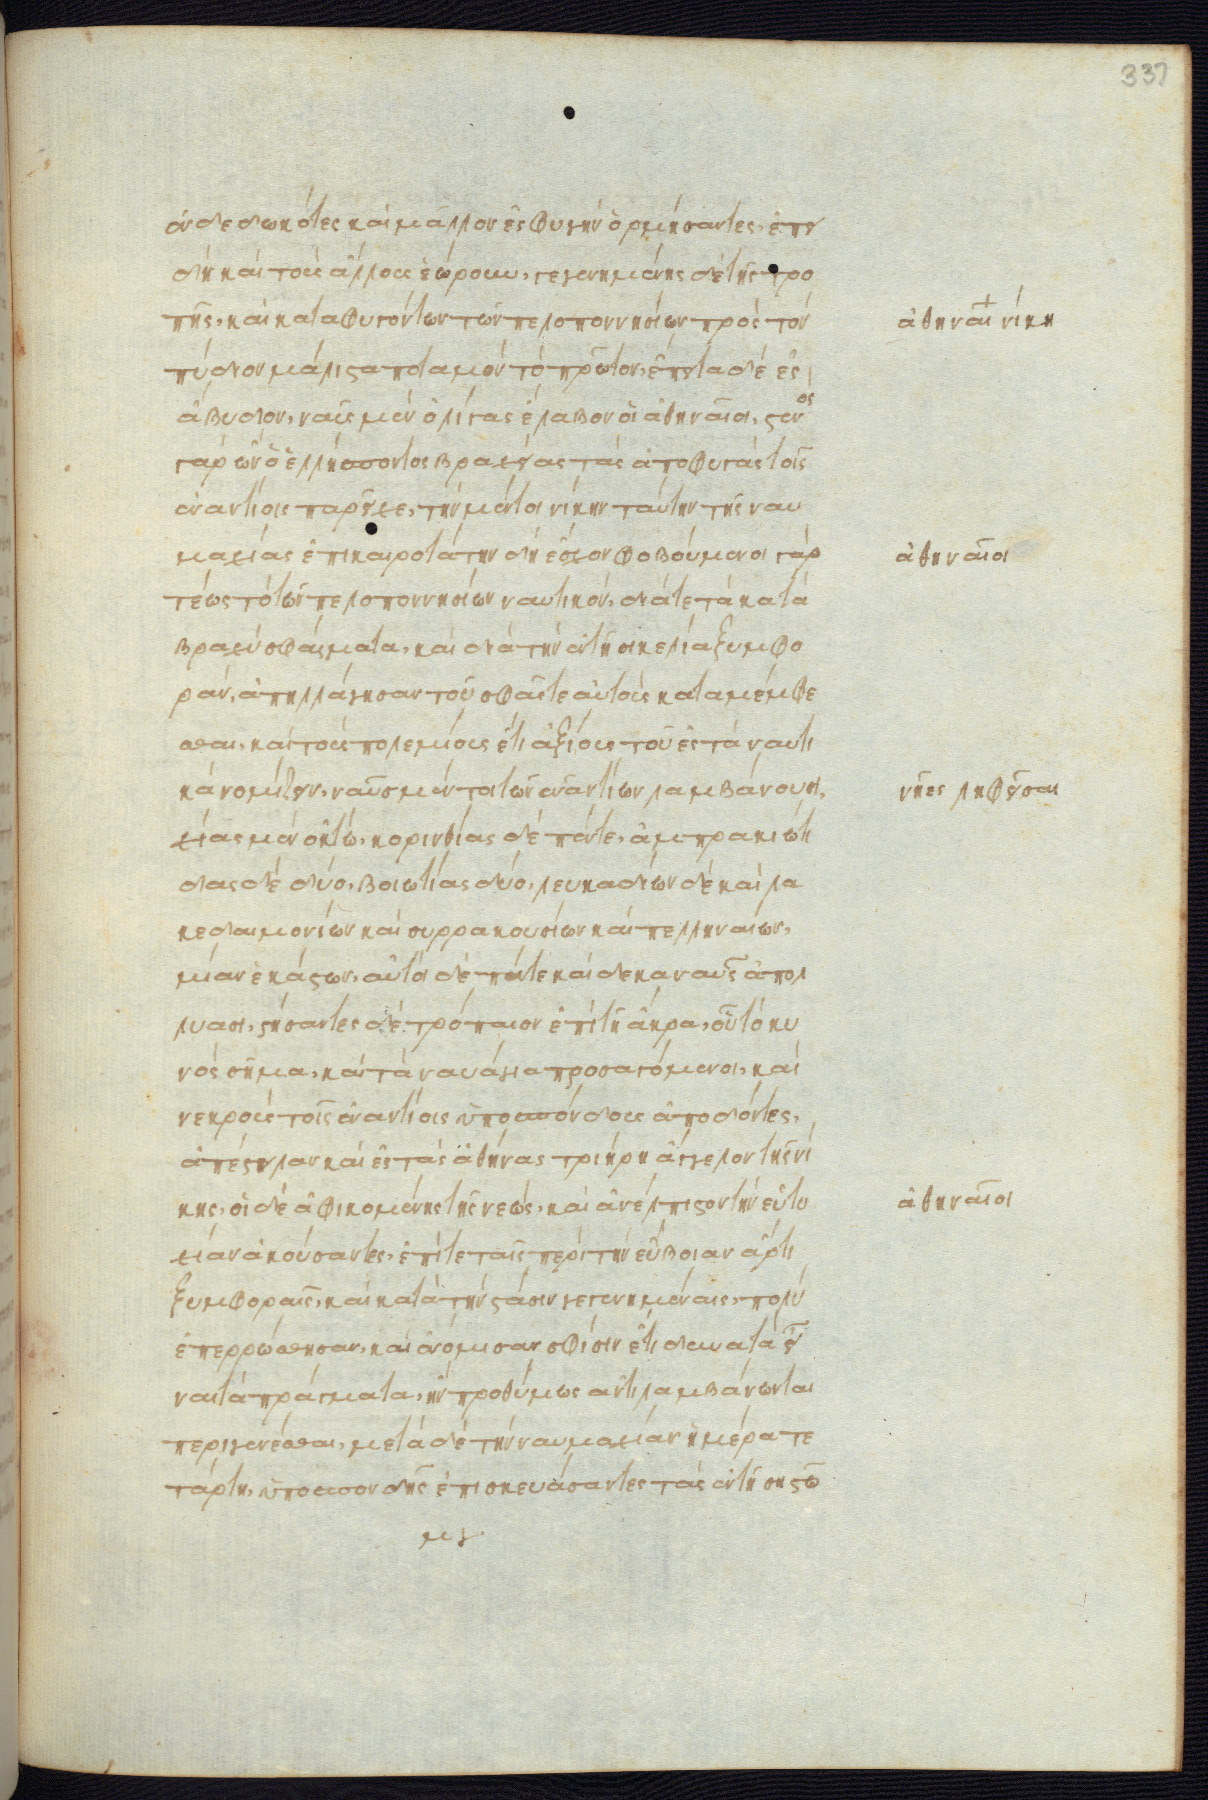 337
ἐνδεδωκότες καὶ μᾶλλον ἐς φυγὴν ὁρμήσαντες, ἐπει
δὴ καὶ τοὺς ἄλλους ἑώρων, γεγενημένης δὲ τῆς τρο
πῆς, καὶ καταφυγόντων τῶν πελοποννησίων πρὸς τὸν
ἀθηναίων νίκη
πύδιον μάλιστα ποταμὸν τὸ πρῶτον, ἔπειτα δὲ ἐς
ἄβυδον, ναῦς μὲν ὀλίγας ἔλαβον οἱ ἀθηναῖοι, στενὸς
γὰρ ὢν ὁ ἑλλήσποντος βραχείας τὰς ἀποφυγὰς τοῖς
ἐναντίοις παρεῖχε, τὴν μέντοι νίκην ταύτην τῆς ναυ
μαχίας ἐπικαιροτάτην δὴ ἔσχον φοβούμενοι γὰρ
ἀθηναῖοι
τέως τὸ τῶν πελοποννησίων ναυτικὸν, διά τε τὰ κατὰ
βραχὺ σφάλματα, καὶ διὰ τὴν ἐν τῆ σικελία ξυμφο
ρὰν, ἀπηλλάγησαν τοῦ σφᾶς τε αὐτοὺς καταμέμφε
σθαι, καὶ τοὺς πολεμίους ἔτι ἀξίους του ἐς τὰ ναυτι
κὰ νομίζειν, ναῦς μέντοι τῶν ἐναντίων λαμβάνουσι,
νῆες ληφθεῖσαι
χίας μὲν ὀκτὼ, κορινθίας δὲ πέντε, ἀμπρακιώτι
δας δὲ δύο, βοιωτίας δύο, λευκαδίων δὲ καὶ λα
κεδαιμονίων καὶ συρρακουσίων καὶ πελληναίων,
μίαν ἑκάστων, αὐτοὶ δὲ πέντε καὶ δεκα ναῦς ἀπολ
λυασι, στήσαντες δὲ τρόπαιον ἐπὶ τῆ ἄκρα, οὗ τὸ κυ
νὸς σῆμα, καὶ τὰ ναυάγια προσαγόμενοι, καὶ
νεκροὺς τοῖς ἐναντίοις ὑποσπόνδους ἀποδόντες,
ἀπέστειλαν καὶ ἐς τὰς ἀθήνας τριήρη ἄγγελον τῆς νί
κης, οἱ δὲ ἀφικομένης τῆς νεὼς, καὶ ἀνέλπιστον τὴν εὐτυ
ἀθηναῖοι
χίαν ἀκούσαντες, ἐπί τε ταῖς περὶ τὴν εὔβοιαν ἄρτι
ξυμφοραῖς, καὶ κατὰ τὴν στάσιν γεγενημέναις, πολὺ
ἐπερρώσθησαν, καὶ ἐνόμισαν σφίσιν ἔτι δυνατὰ εἶ
ναι τὰ πράγματα, ἢν προθύμως ἀντιλαμβάνωνται
περιγενέσθαι, μετὰ δὲ τὴν ναυμαχίαν ἡμέρα τε
τάρτη, ὑποσπουδῆς ἐπισκευάσαντες τὰς ἐν τῆ σηστῶ
μγ